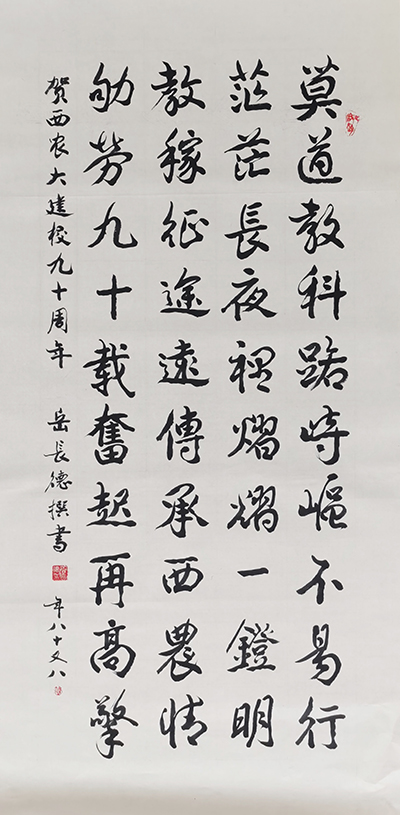 莫道教科路崎嶇不易行
茫茫長夜裡熠熠一鐙明
教稼征途遠傳承西農情
劬勞九十載奮起再高擎
贺西农大建校九十周年 岳長德撰書 年八十又八